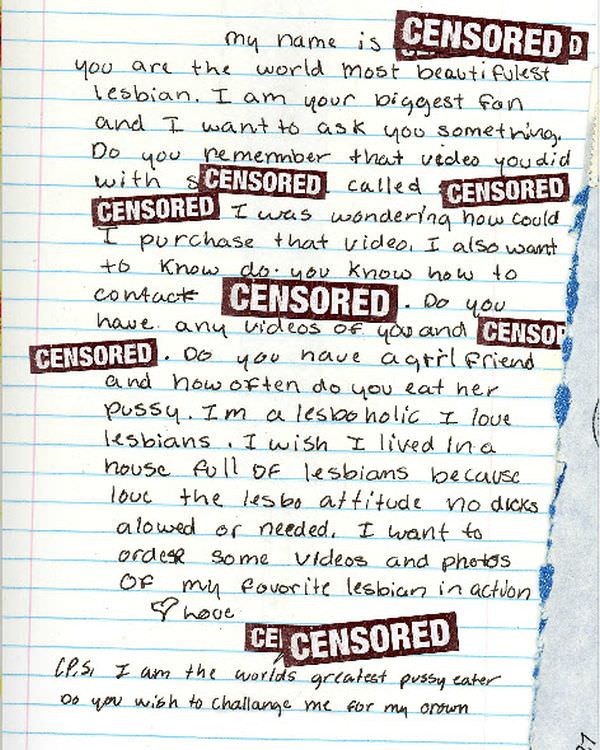 my name is CENSORED D
you are the world most beautifulest
lesbian. I am your biggest fan
and I want to ask you something.
Do you remember that video you did
with s CENSORED called CENSORED
CENSORED I was wondering how could
I purchase that video. I also want
to know do. you know how to
contact CENSORED . Do you
have any videos of you and CENSOR
CENSORED . Do you have a girl friend
and how often do you eat her
pussy. Im a lesboholic I love
lesbians . I wish I lived In a
house full of lesbians because
love the lesbo attitude no dicks
alowed or needed. I want to
order some videos and photos
Of my favorite lesbian in action
Love
CE CENSORED
(P.S, I am the worlds greatest pussy eater
Do you wish to challange me for my crown